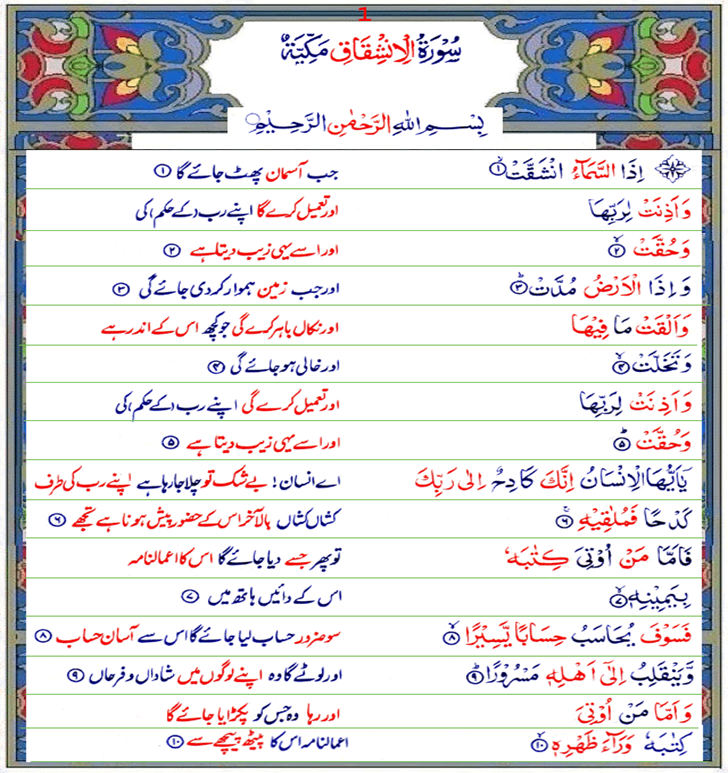 1
سُوْرَةُ الْاِنْشِقَاقِ مَكِّيَّةٌ
بِسْمِ اللّٰهِ الرَّحْمٰنِ الرَّحِيْمِ
اِذَا السَّمَآءُ انْشَقَّتْ ۙ﴿۱﴾ جب آسمان پھٹ جائے گا ﴿۱﴾
وَاَذِنَتْ لِرَبِّهَا اور تعمیل کرے گا اپنے رب (کے حکم) کی
وَحُقَّتْ ۙ﴿۲﴾ اور اسے یہی زیب دیتا ہے ﴿۲﴾
وَاِذَا الْاَرْضُ مُدَّتْ ۙ﴿۳﴾ اور جب زمین ہموار کردی جائے گی ﴿۳﴾
وَاَلْقَتْ مَا فِيْهَا اور نکال باہر کرے گی جو کچھ اس کے اندر ہے
وَتَخَلَّتْ ۙ﴿۴﴾ اور خالی ہو جائے گی ﴿۴﴾
وَاَذِنَتْ لِرَبِّهَا اور تعمیل کرے گی اپنے رب (کے حکم) کی
وَحُقَّتْ ؕ﴿۵﴾ اور اسے یہی زیب دیتا ہے ﴿۵﴾
يٰۤاَيُّهَا الْاِنْسَانُ اِنَّكَ كَادِحٌ اِلٰى رَبِّكَ اے انسان! بے شک تو چلا جا رہا ہے اپنے رب کی طرف
كَدْحًا فَمُلٰقِيْهِ ۚ﴿۶﴾ کشاں کشاں بالآخر اس کے حضور پیش ہونا ہے تجھے ﴿۶﴾
فَاَمَّا مَنْ اُوْتِىَ كِتٰبَهٗ تو پھر جسے دیا جائے گا اس کا اعمالنامہ
بِيَمِيْنِهٖ ۙ﴿۷﴾ اس کے دائیں ہاتھ میں ﴿۷﴾
فَسَوْفَ يُحَاسَبُ حِسَابًا يَّسِيْرًا ۙ﴿۸﴾ سو ضرور حساب لیا جائے گا اس سے آسان حساب ﴿۸﴾
وَّيَنْقَلِبُ اِلٰٓى اَهْلِهٖ مَسْرُوْرًا ؕ﴿۹﴾ اور لوٹے گا وہ اپنے لوگوں میں شاداں و فرحاں ﴿۹﴾
وَاَمَّا مَنْ اُوْتِىَ اور رہا وہ جس کو پکڑایا جائے گا
كِتٰبَهٗ وَرَآءَ ظَهْرِهٖ ۙ﴿۱۰﴾ اعمالنامہ اس کا پیٹھ پیچھے سے ﴿۱۰﴾